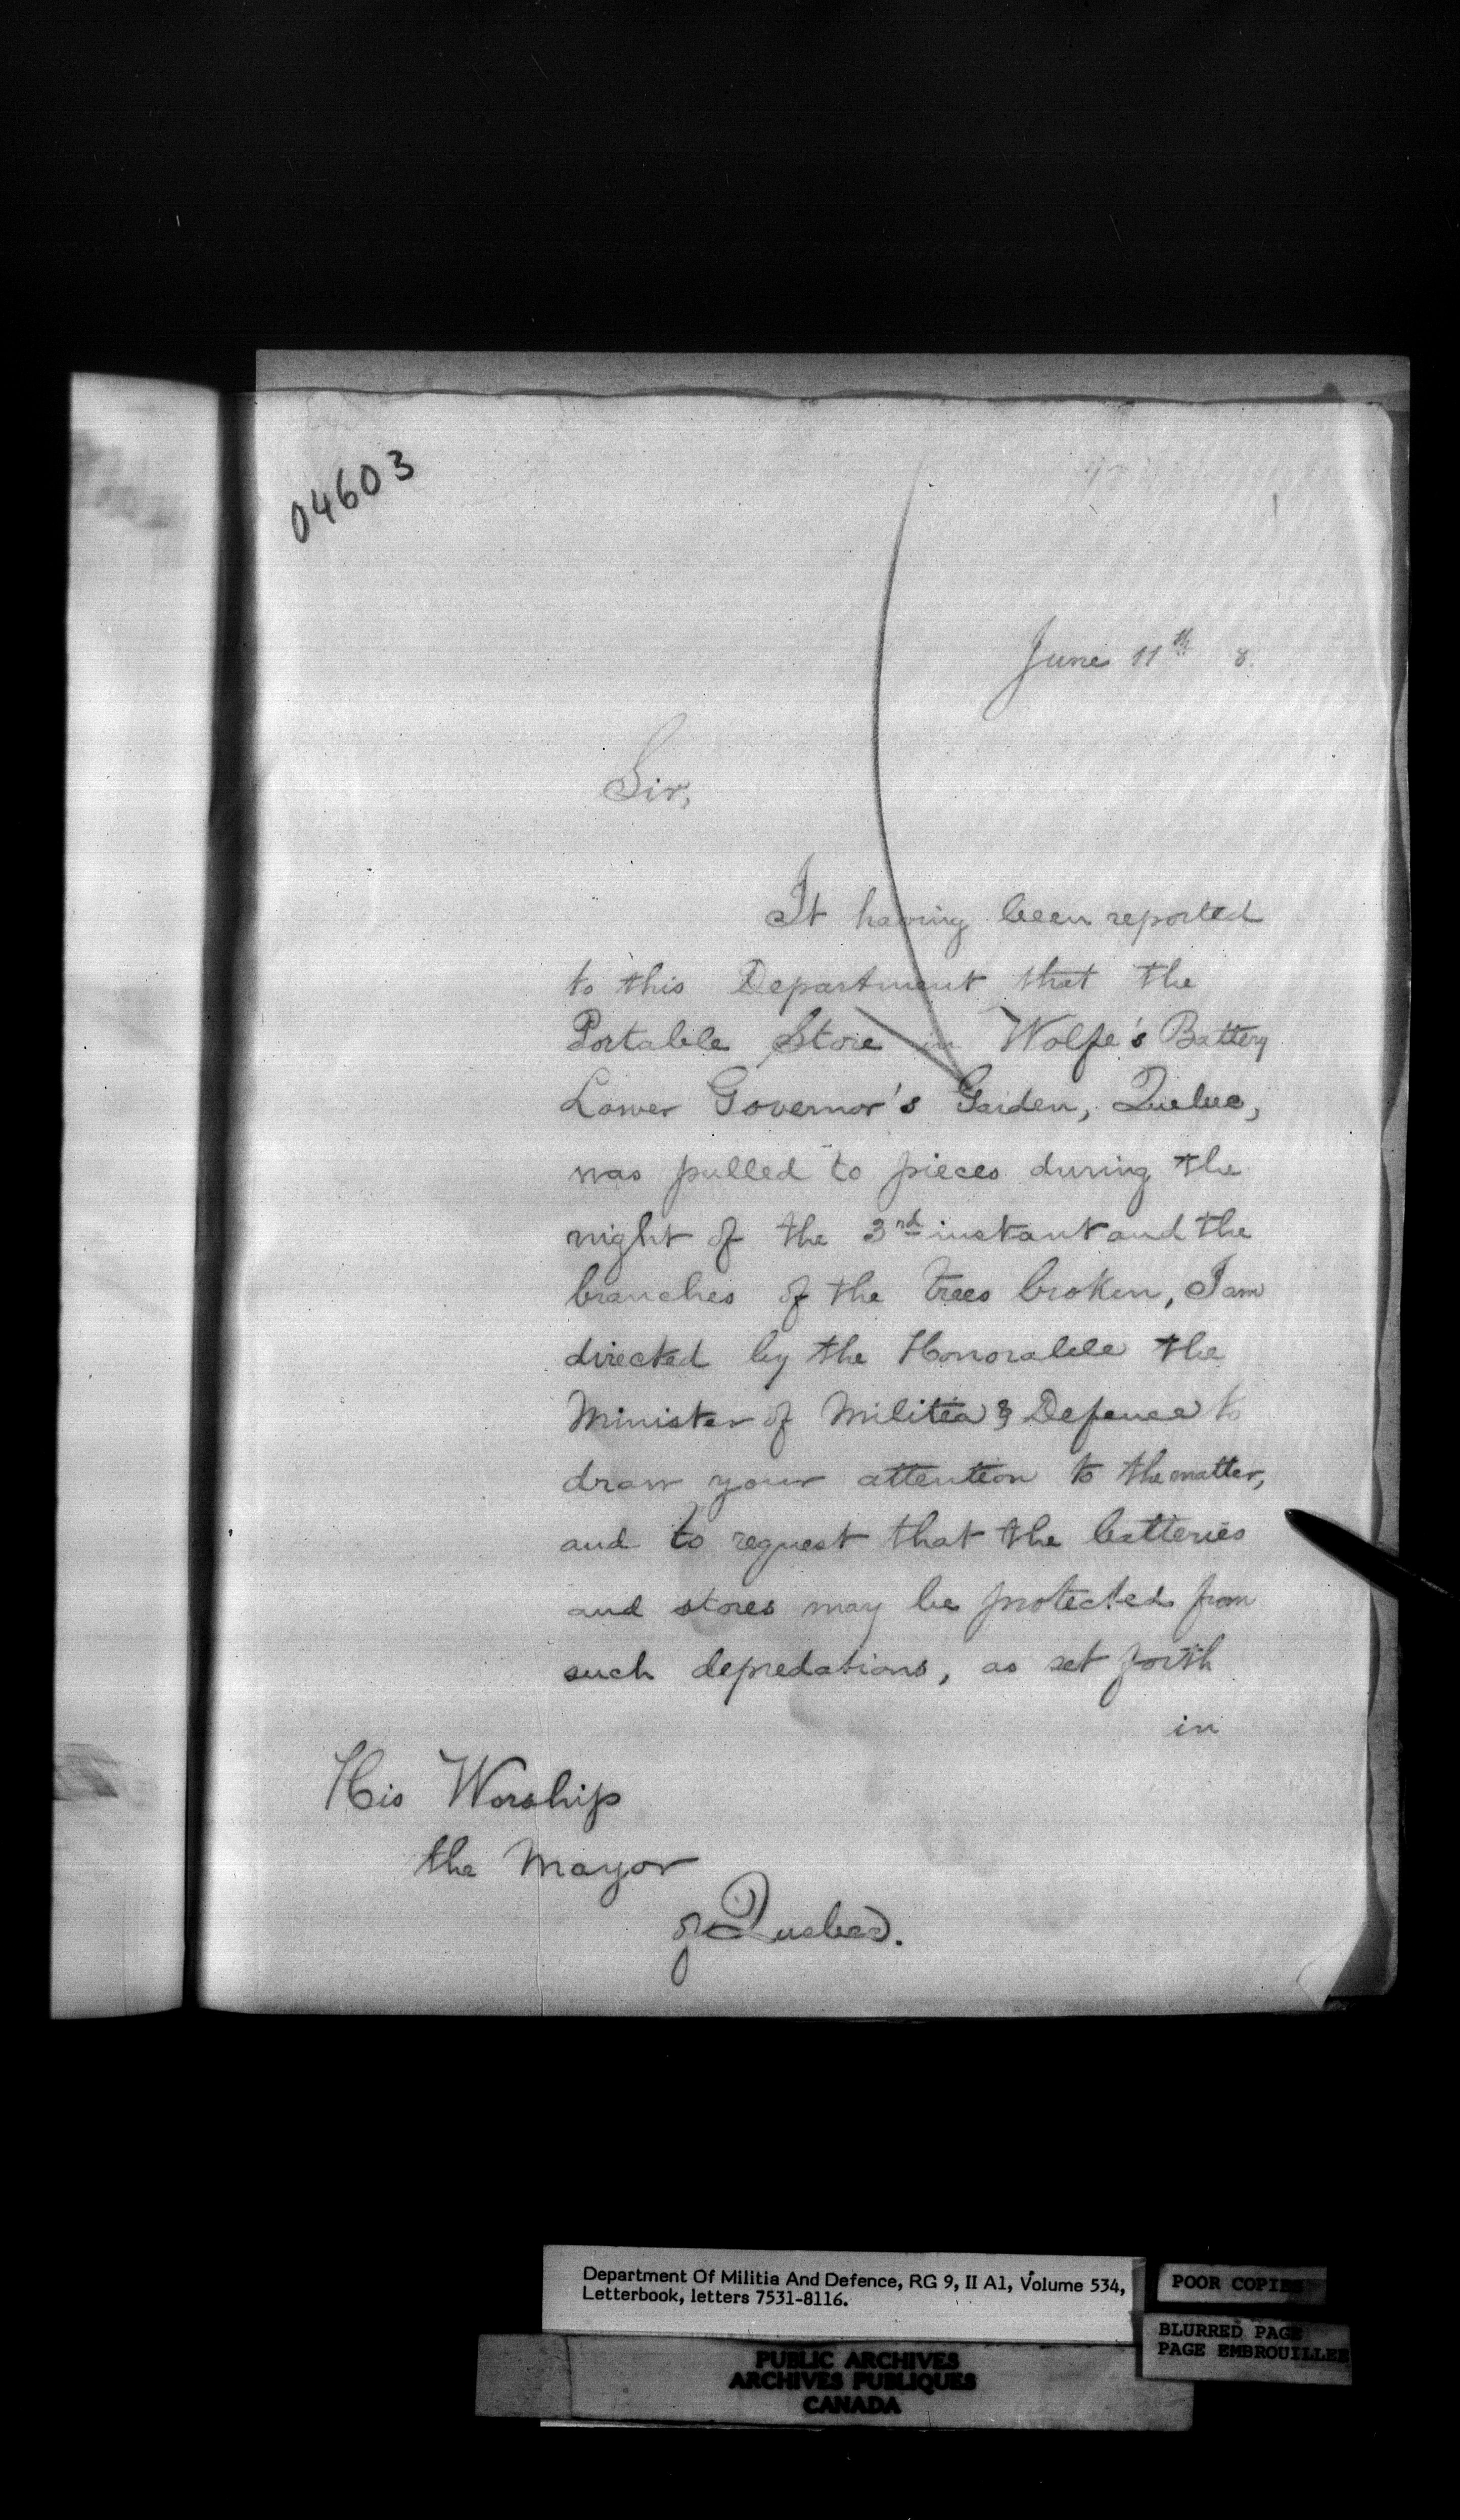 04603
June 11th 8.
Sir,
It having been reported
to this Department that the
Portable Store in Wolfe's Battery
Lower Governor's Garden, Quebec,
was pulled to pieces during the
night of the 3rd instant and the
branches of the trees broken, I am
directed by the Honorable the
Minister of Militia & Defence to
draw your attention to the matter,
and to request that the batteries
and stores may be protected from
such depredations, as set forth
in
His Worship
the Mayor
of Quebec.
Department Of Militia And Defence, RG 9, II A1, Volume 534,
Letterbook, letters 7531-8116.
POOR COPIES
BLURRED PAGE
PAGE EMBROUILLEE
PUBLIC ARCHIVES
ARCHIVES PUBLIQUES
CANADA